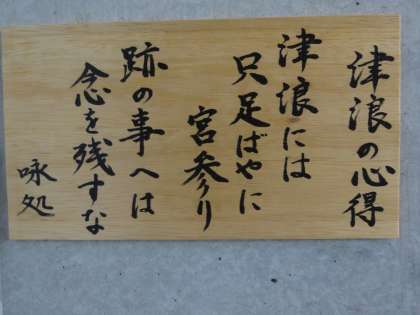 津浪の心得
津浪には
只足ばやに
宮参り
跡の事へは
念を残すな
咏処